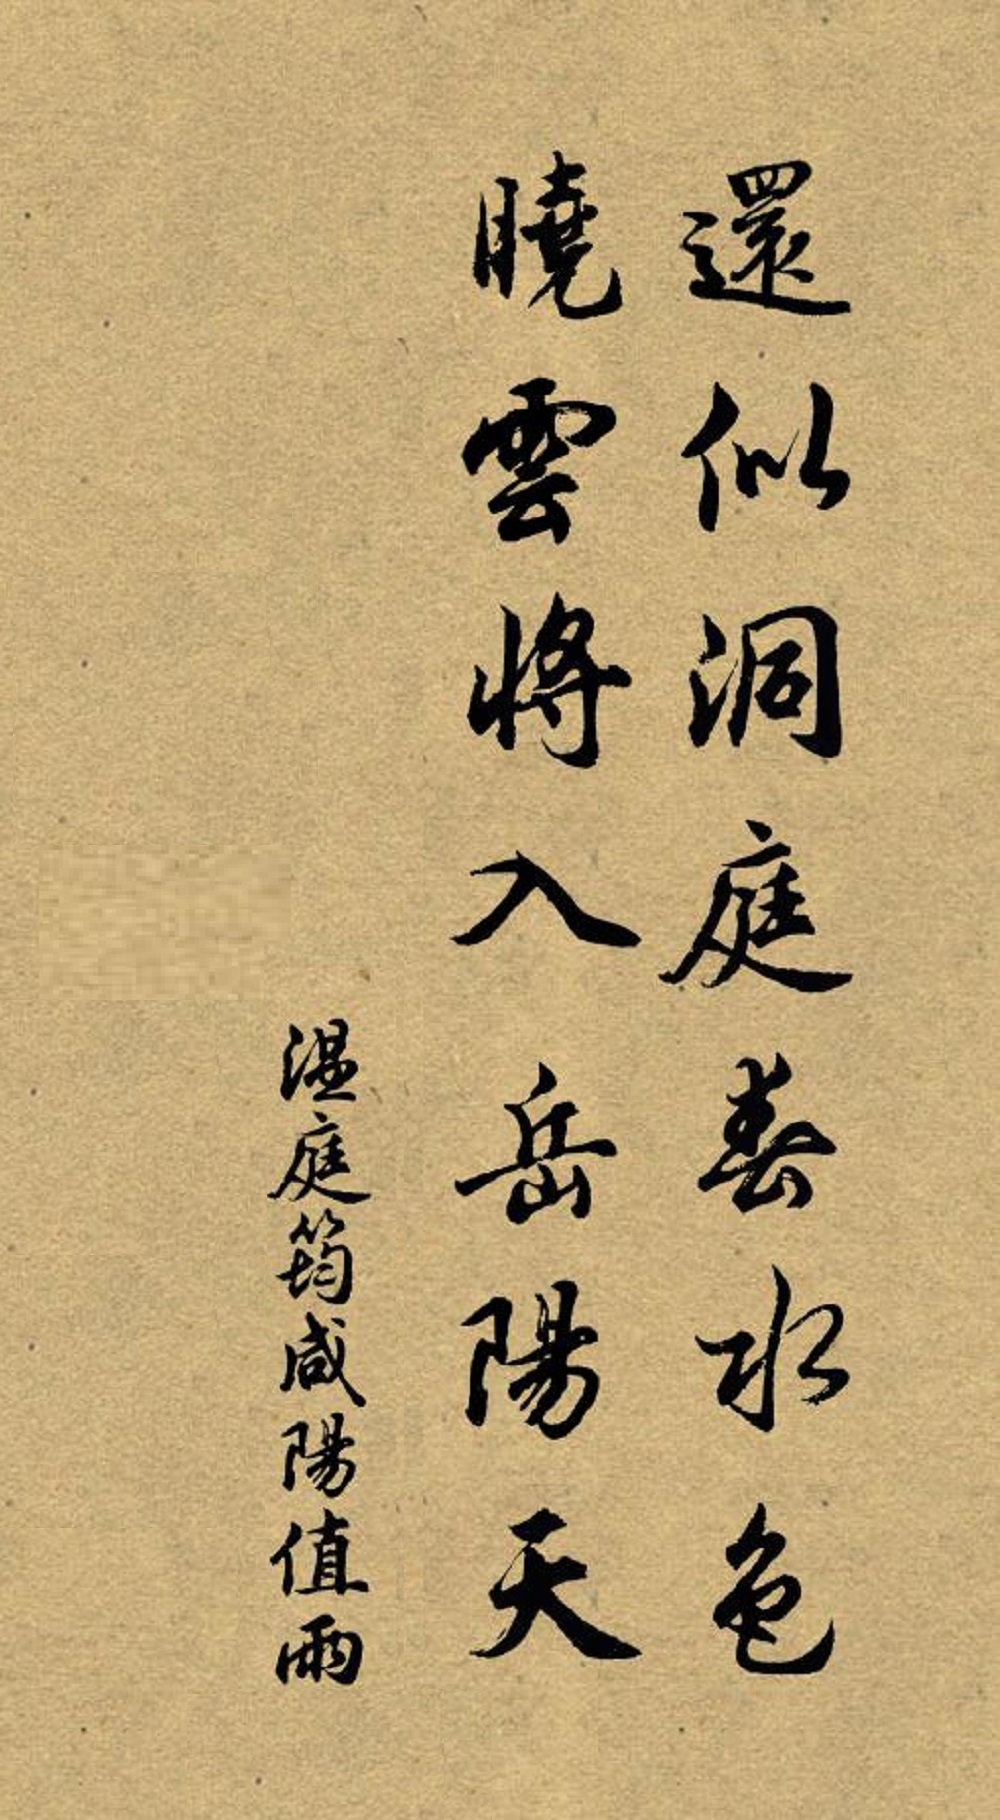 還似洞庭春水色
曉雲將入岳陽天
温庭筠咸陽值雨